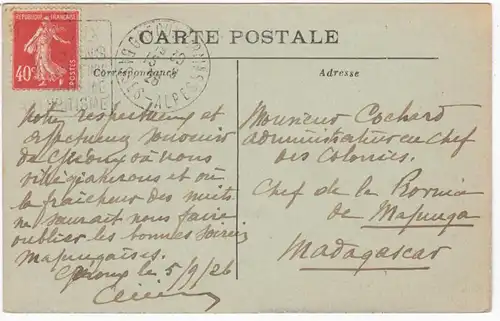 CARTE POSTALE
Correspondance
Adresse
REPUBLIQUE FRANCAISE
40c
POSTES
ALPES
TISME
Notre respectueux et
affectueux souvenir
de où nous
villégiaturons et où
la fraîcheur des nuits
ne saurait nous faire
oublier les bonnes soirées
majungaises.
le 5/9/26
Monsieur Cochard
administrateur en Chef
des Colonies.
Chef de la
de Majunga
Madagascar